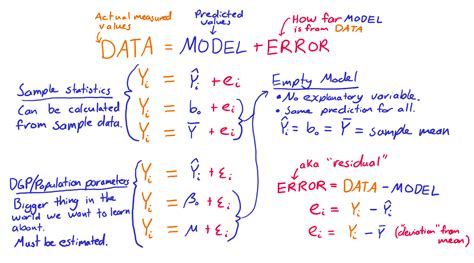 Actual measured values
Predicted values
How far MODEL is from DATA
DATA = MODEL + ERROR
Sample statistics
Can be calculated
from sample data.
Yᵢ = Ŷᵢ + eᵢ
Yᵢ = b₀ + eᵢ
Yᵢ = Ȳ + eᵢ
Empty Model
• No explanatory variable.
• Same prediction for all.
Ŷᵢ = b₀ = Ȳ = sample mean
DGP/Population parameters
Bigger thing in the
world we want to learn
about.
Must be estimated.
Yᵢ = Ŷᵢ + Ɛᵢ
Yᵢ = β₀ + Ɛᵢ
Yᵢ = μ + Ɛᵢ
aka "residual"
ERROR = DATA - MODEL
eᵢ = Yᵢ - Ŷᵢ
eᵢ = Yᵢ - Ȳ ("deviation" from mean)